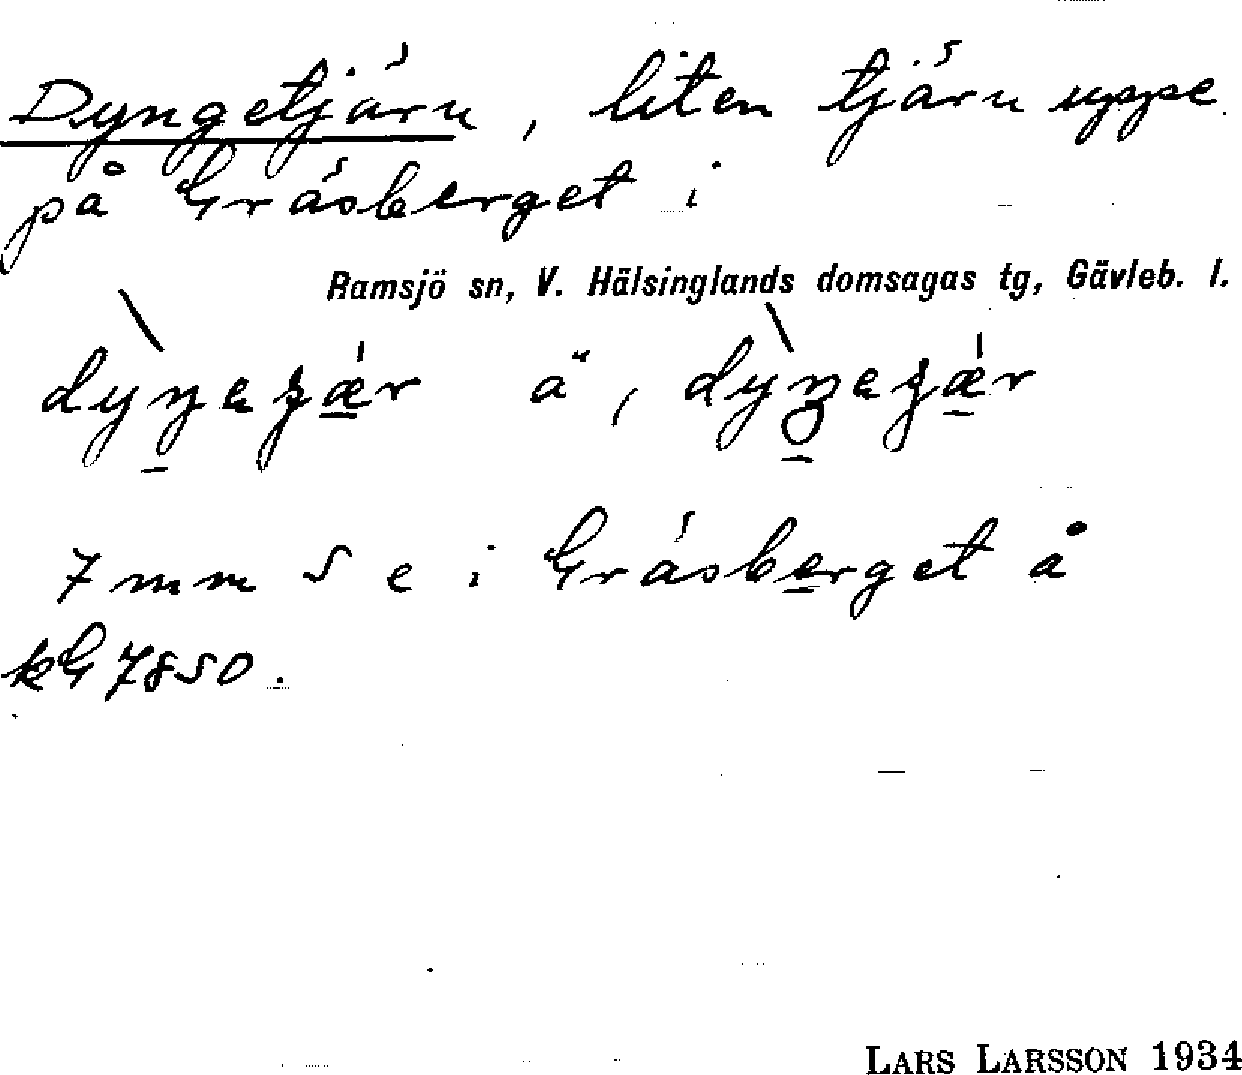 Dyngetjärn, liten tjärn uppe
på Gräsberget i
Ramsjö sn, V. Hälsinglands domsagas tg, Gävleb. l.
ä,
7 mm S e i Gräsberget å
kG 7850.
LARS LARSSON 1934